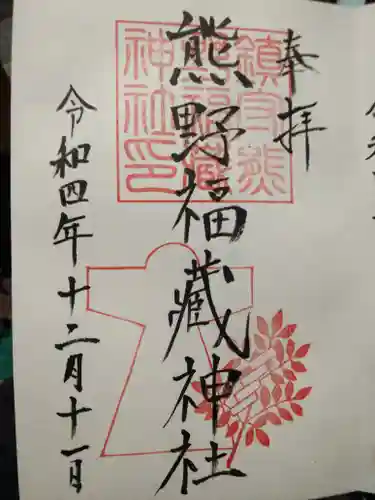 奉拝
鎮守熊
野福蔵
神社印
熊野福蔵神社
令和四年十二月十一日